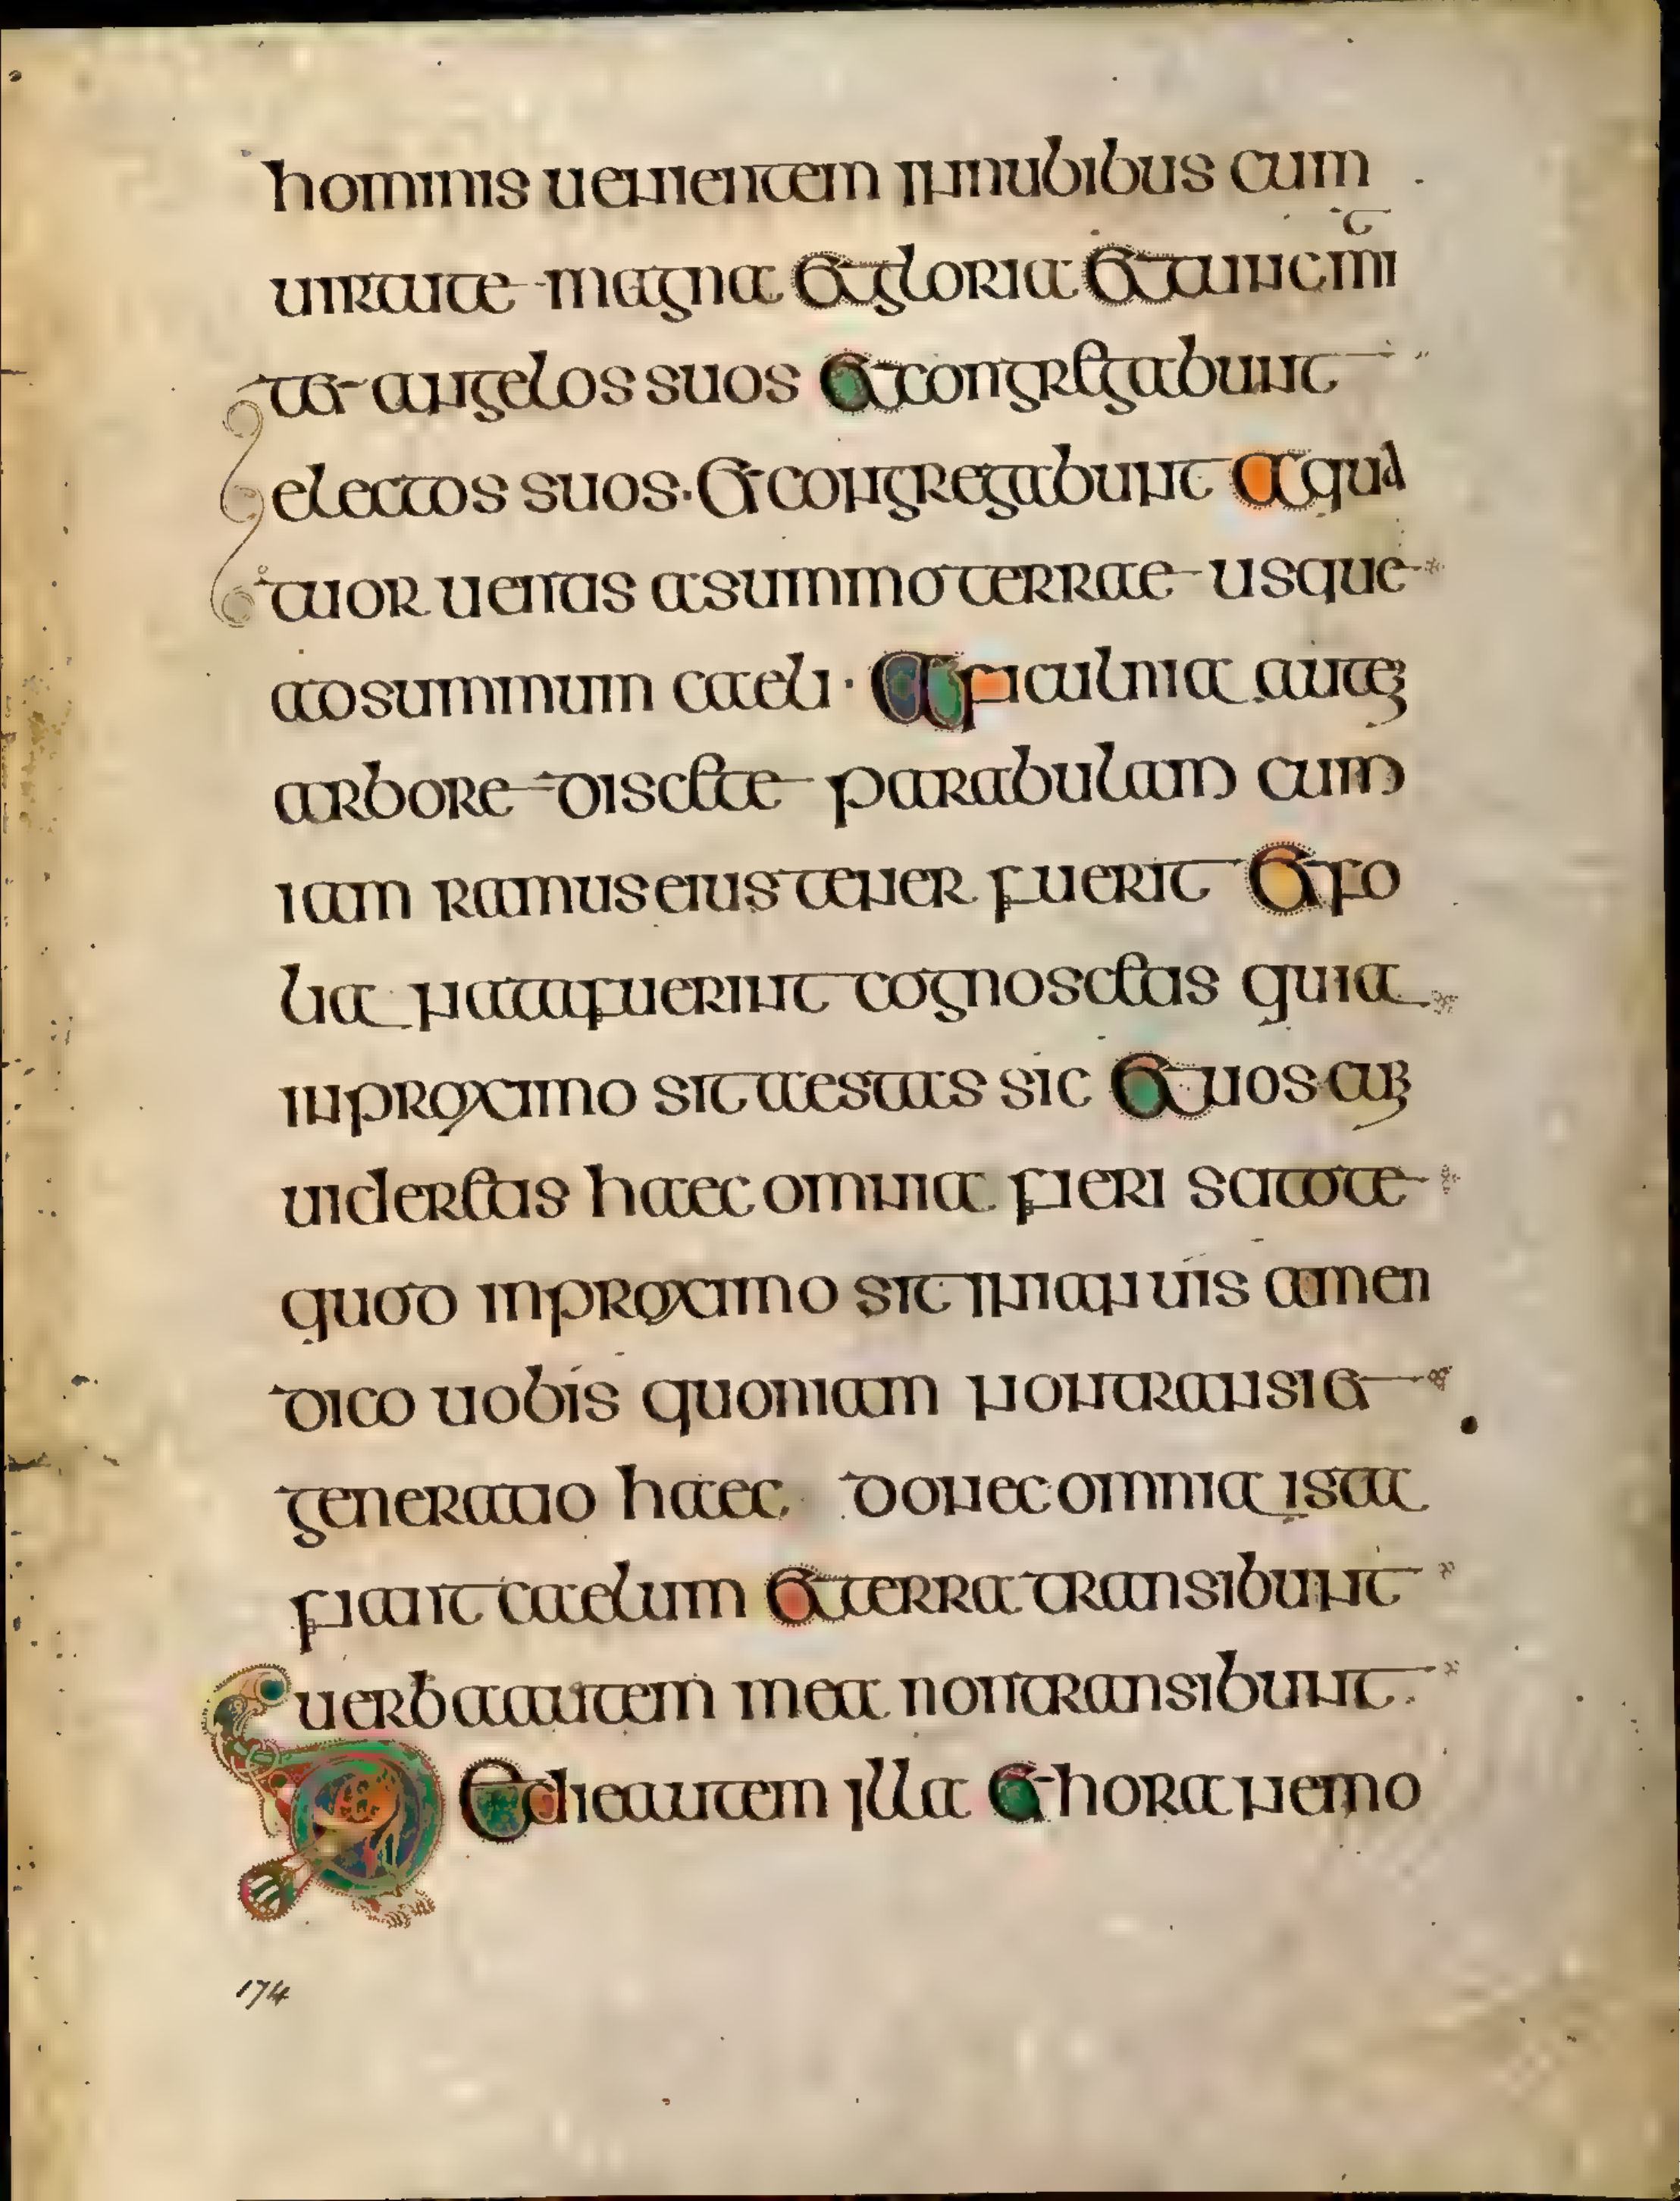 hominis uenientem innubibus cum
uirtute magna et gloria et tunc mi
tet angelos suos et congregabunt
electos suos · et congregabunt a qua
tuor uentis a summo terrae usque
ad summum caeli · A ficulnia autem
arbore discete parabulam cum
iam ramus eius tener fuerit et fo
lia nata fuerint cognoscetis quia
in proximo sit aestas sic et uos cum
uideretis haec omnia fieri scitote
quod in proximo sit in ianuis amen
dico uobis quoniam non transiet
generatio haec donec omnia ista
fiant caelum et terra transibunt
uerba autem mea non transibunt
De die autem illa et hora nemo
174